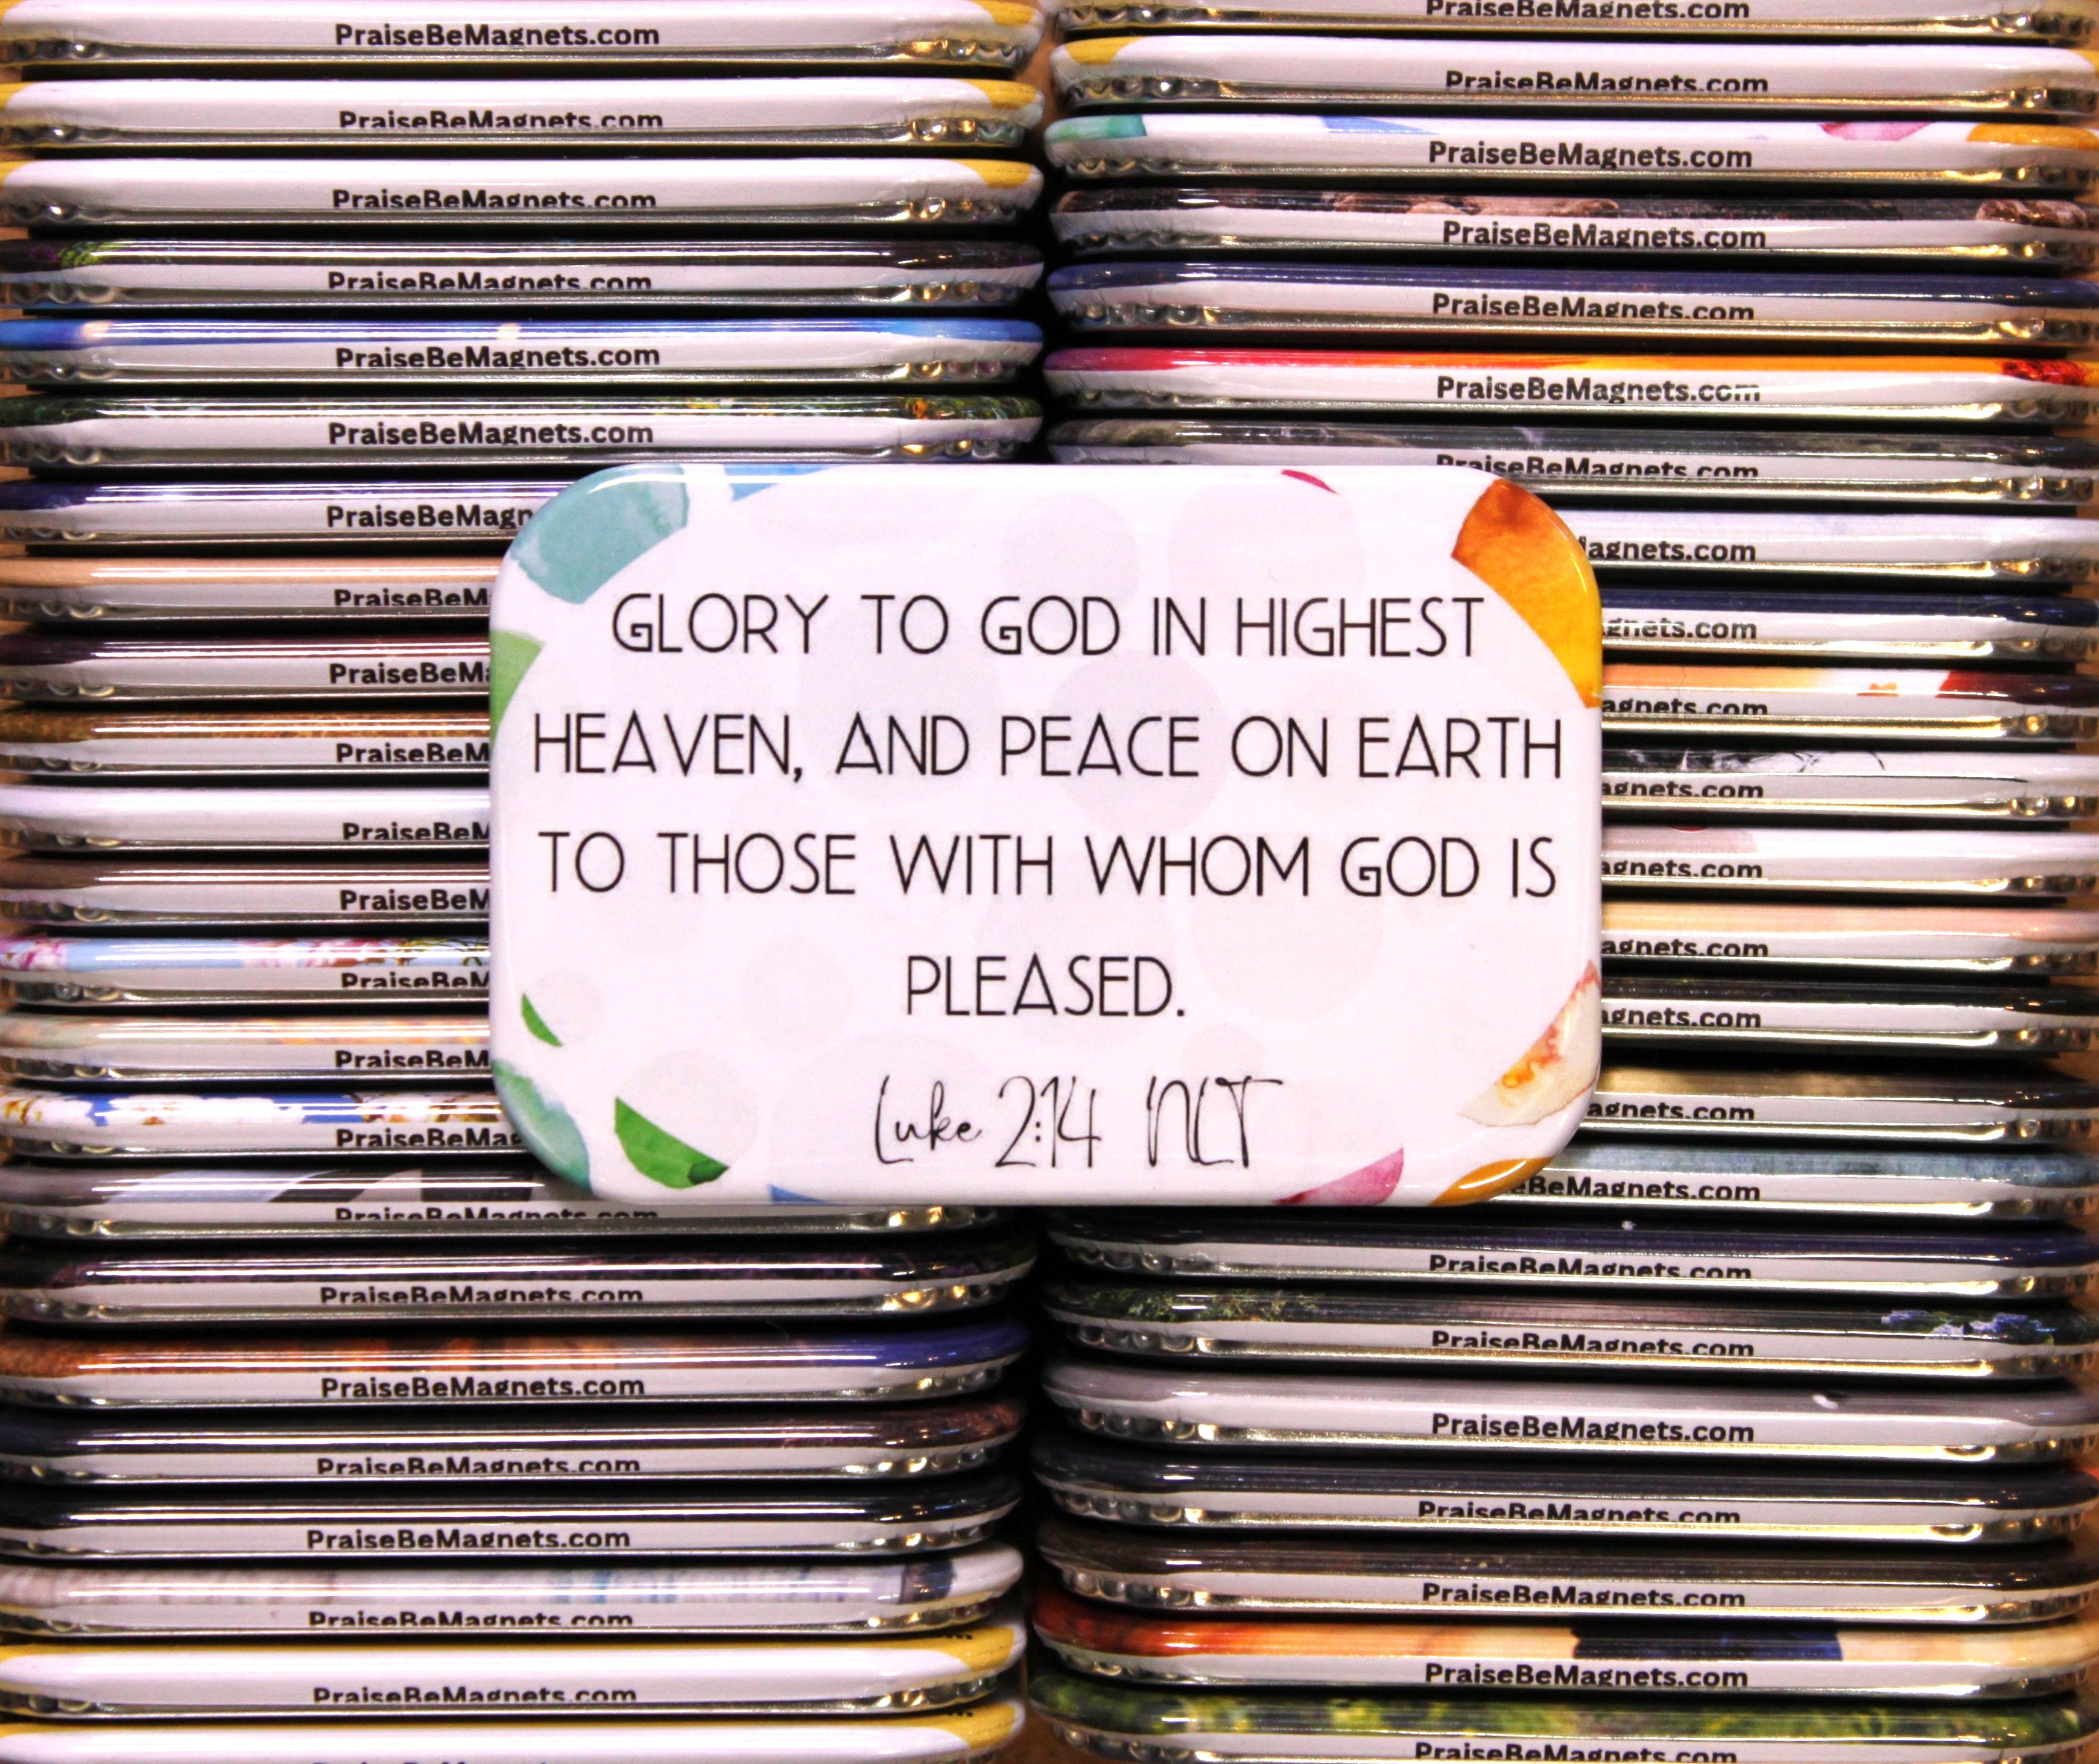 PraiseBeMagnets.com
PraiseBeMagnets.com
PraiseBeMagnets.com
PraiseBeMagnets.com
PraiseBeMagnets.com
PraiseBeMagnets.com
PraiseBeMagn
PraiseBeM
PraiseBeM
PraiseBeM
PraiseBeM
PraiseBeM
PraiseBeM
PraiseBeM
PraiseBeMa
PraiseBeMagnets.com
PraiseBeMagnets.com
PraiseBeMagnets.com
PraiseBeMagnets.com
PraiseBeMagnets.com
PraiseBeMagnets.com
PraiseBeMagnets.com
GLORY TO GOD IN HIGHEST
HEAVEN, AND PEACE ON EARTH
TO THOSE WITH WHOM GOD IS
PLEASED.
Luke 2:14 NLT
PraiseBeMagnets.com
PraiseBeMagnets.com
PraiseBeMagnets.com
PraiseBeMagnets.com
PraiseBeMagnets.com
PraiseBeMagnets.com
PraiseBeMagnets.com
agnets.com
gnets.com
agnets.com
agnets.com
agnets.com
agnets.com
agnets.com
agnets.com
BeMagnets.com
PraiseBeMagnets.com
PraiseBeMagnets.com
PraiseBeMagnets.com
PraiseBeMagnets.com
PraiseBeMagnets.com
PraiseBeMagnets.com
PraiseBeMagnets.com